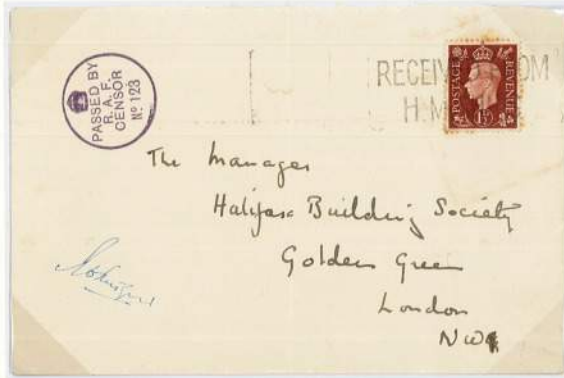 PASSED BY
R.A.F.
CENSOR
Nº 123
RECEIV OM
H.M.
POSTAGE REVENUE
1½
The Manager
Halifax Building Society
Golders Green
London